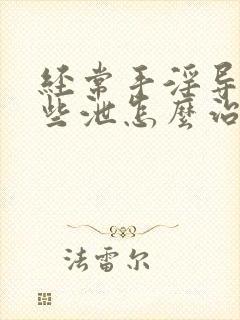 经常手淫导
些泄怎麼治
法雷尔